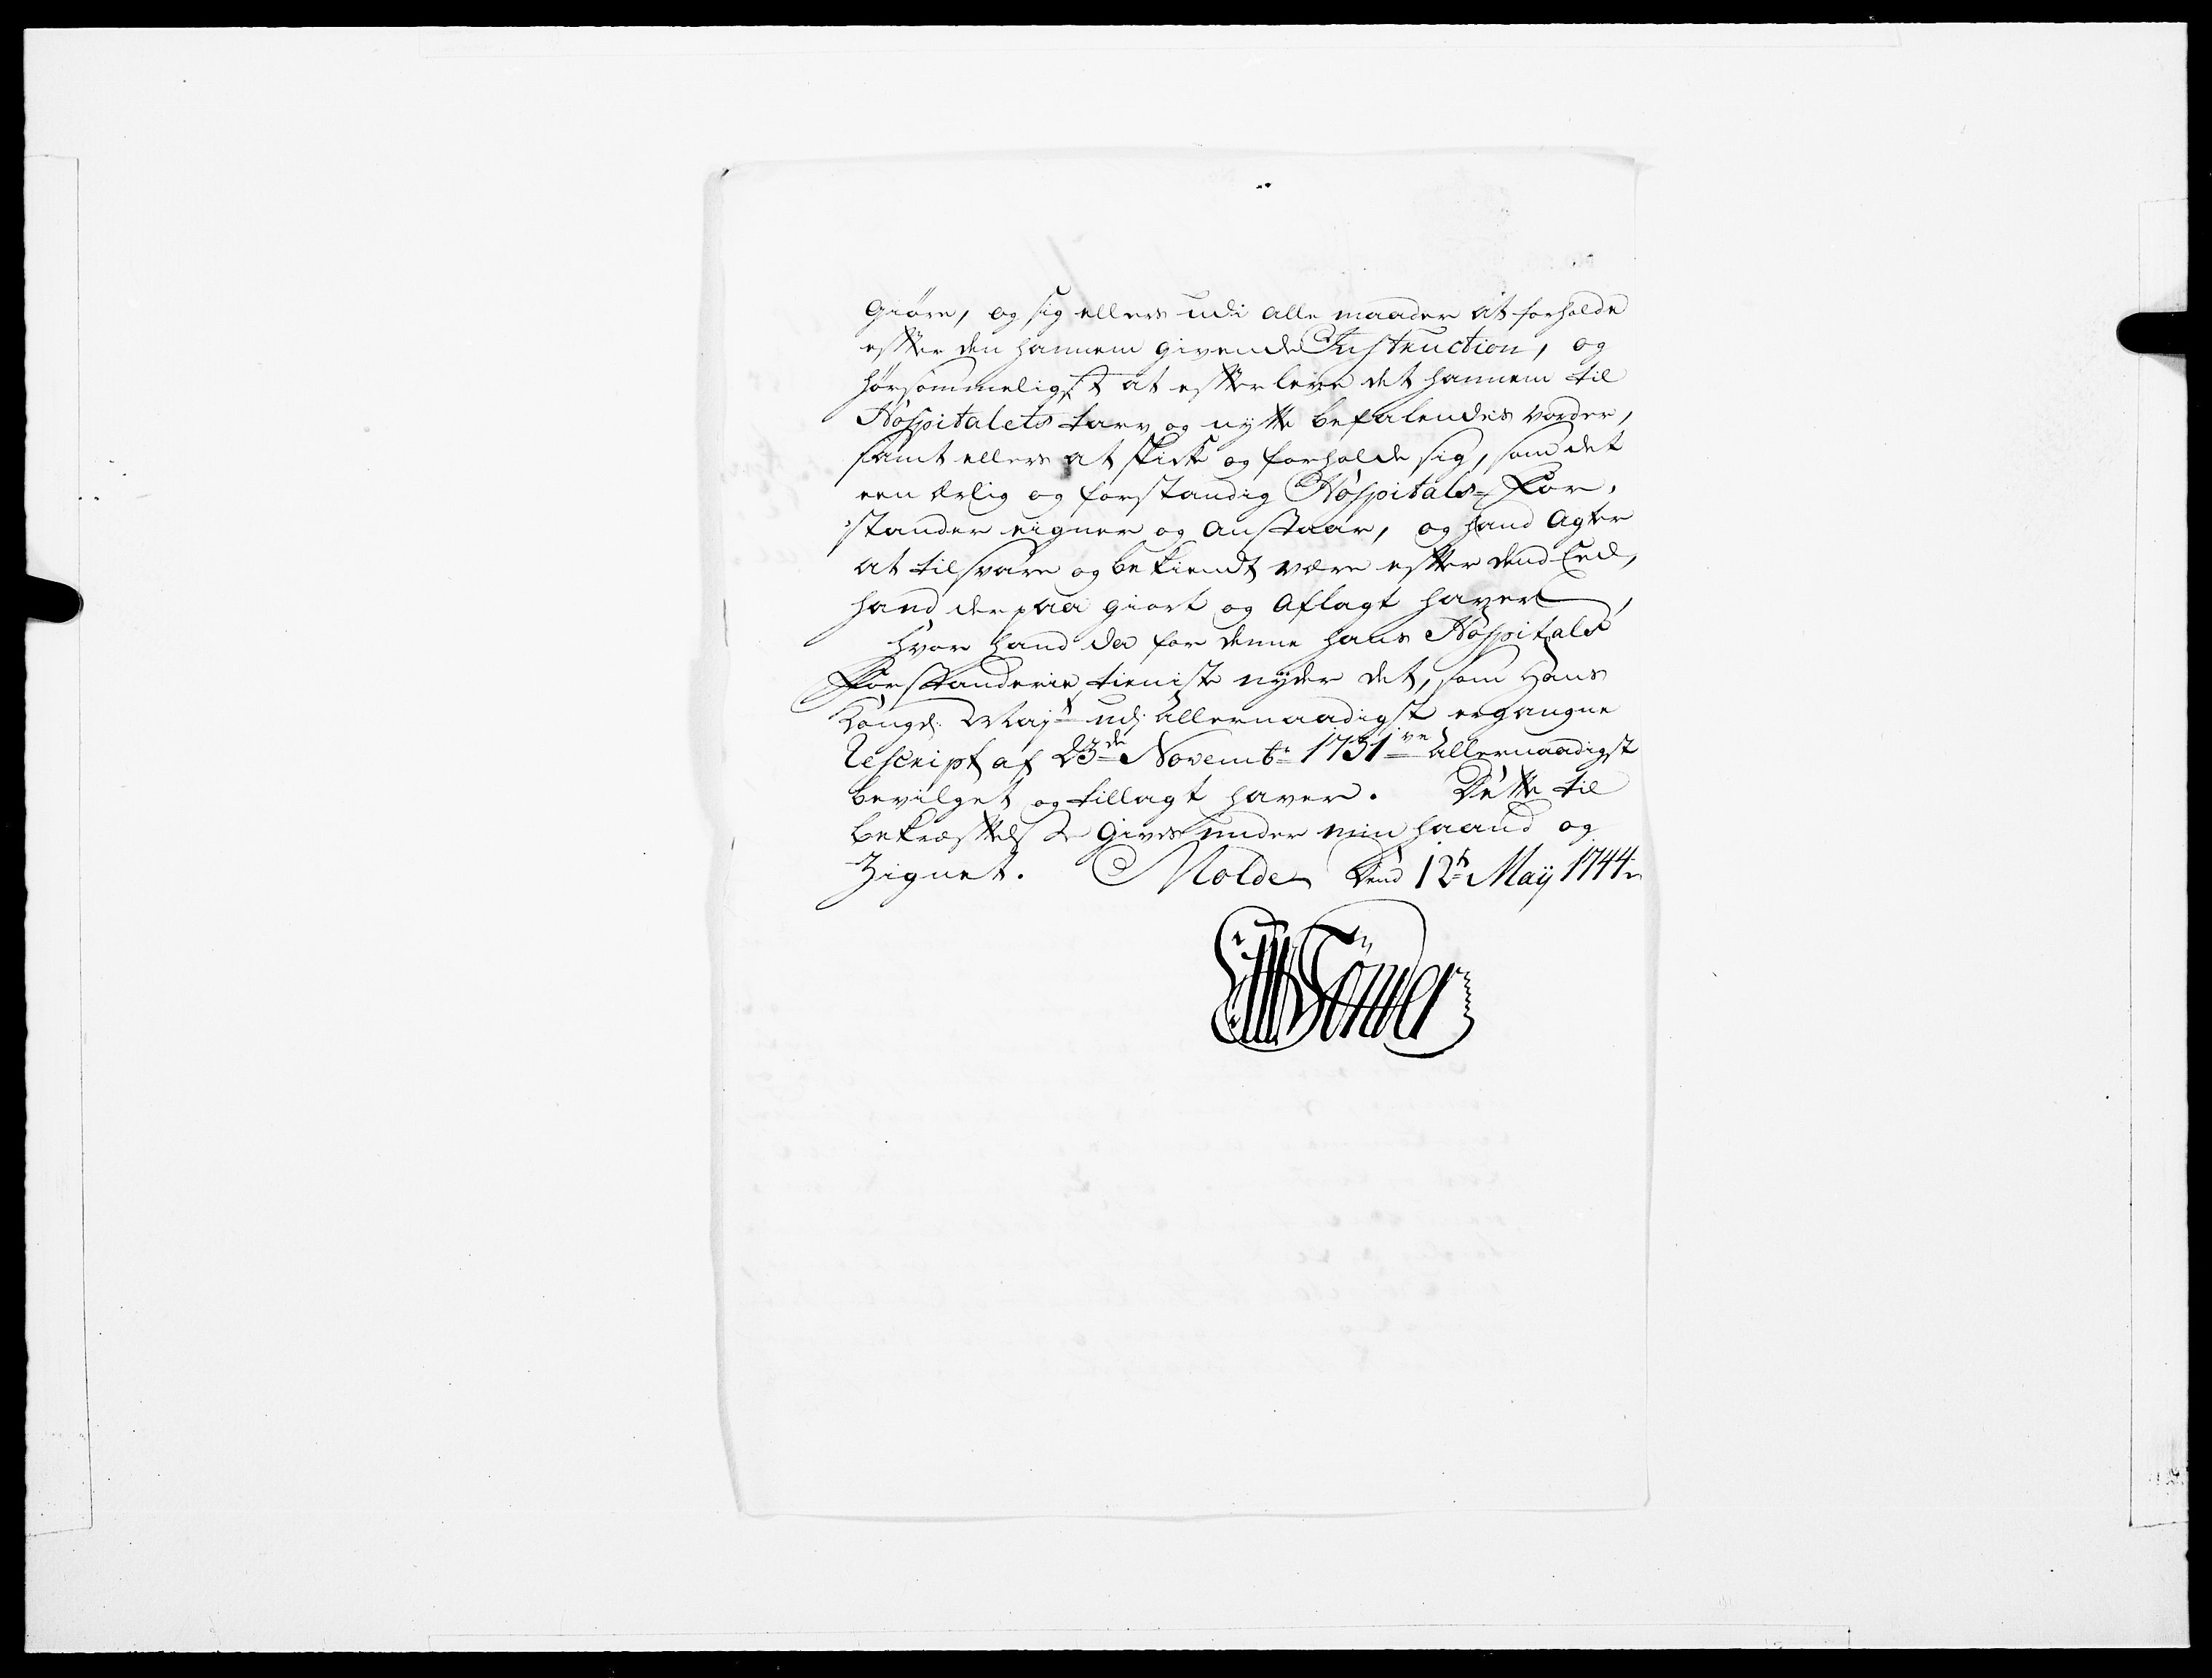 Giöre, og sig ellers udi alle maader at forholde
efter den hannem givende Instruction, og
hørsommeligst at efterleve det hannem til
Hospitalets tarv og nytte befalendes vorder,
samt ellers at skicke og forholde sig, som det
een ærlig og forstandig Hospitals-For-
stander eigner og anstaar, og hand agter
at tilsvare og bekiendt være efter dend Eed,
hand derpaa giort og aflagt haver,
hvor hand da for denne hans Hospitals
Forstanderie tieniste nyder det, som Hans
Kongl: Majt udj allernaadigst ergangne
Rescript af 23de Novembr 1731 allernaadigst
bevilget og tillagt haver. Dette til
bekræftelse Gives under min haand og
Zignet. Molde Dend 12t Maij 1744
Tönder